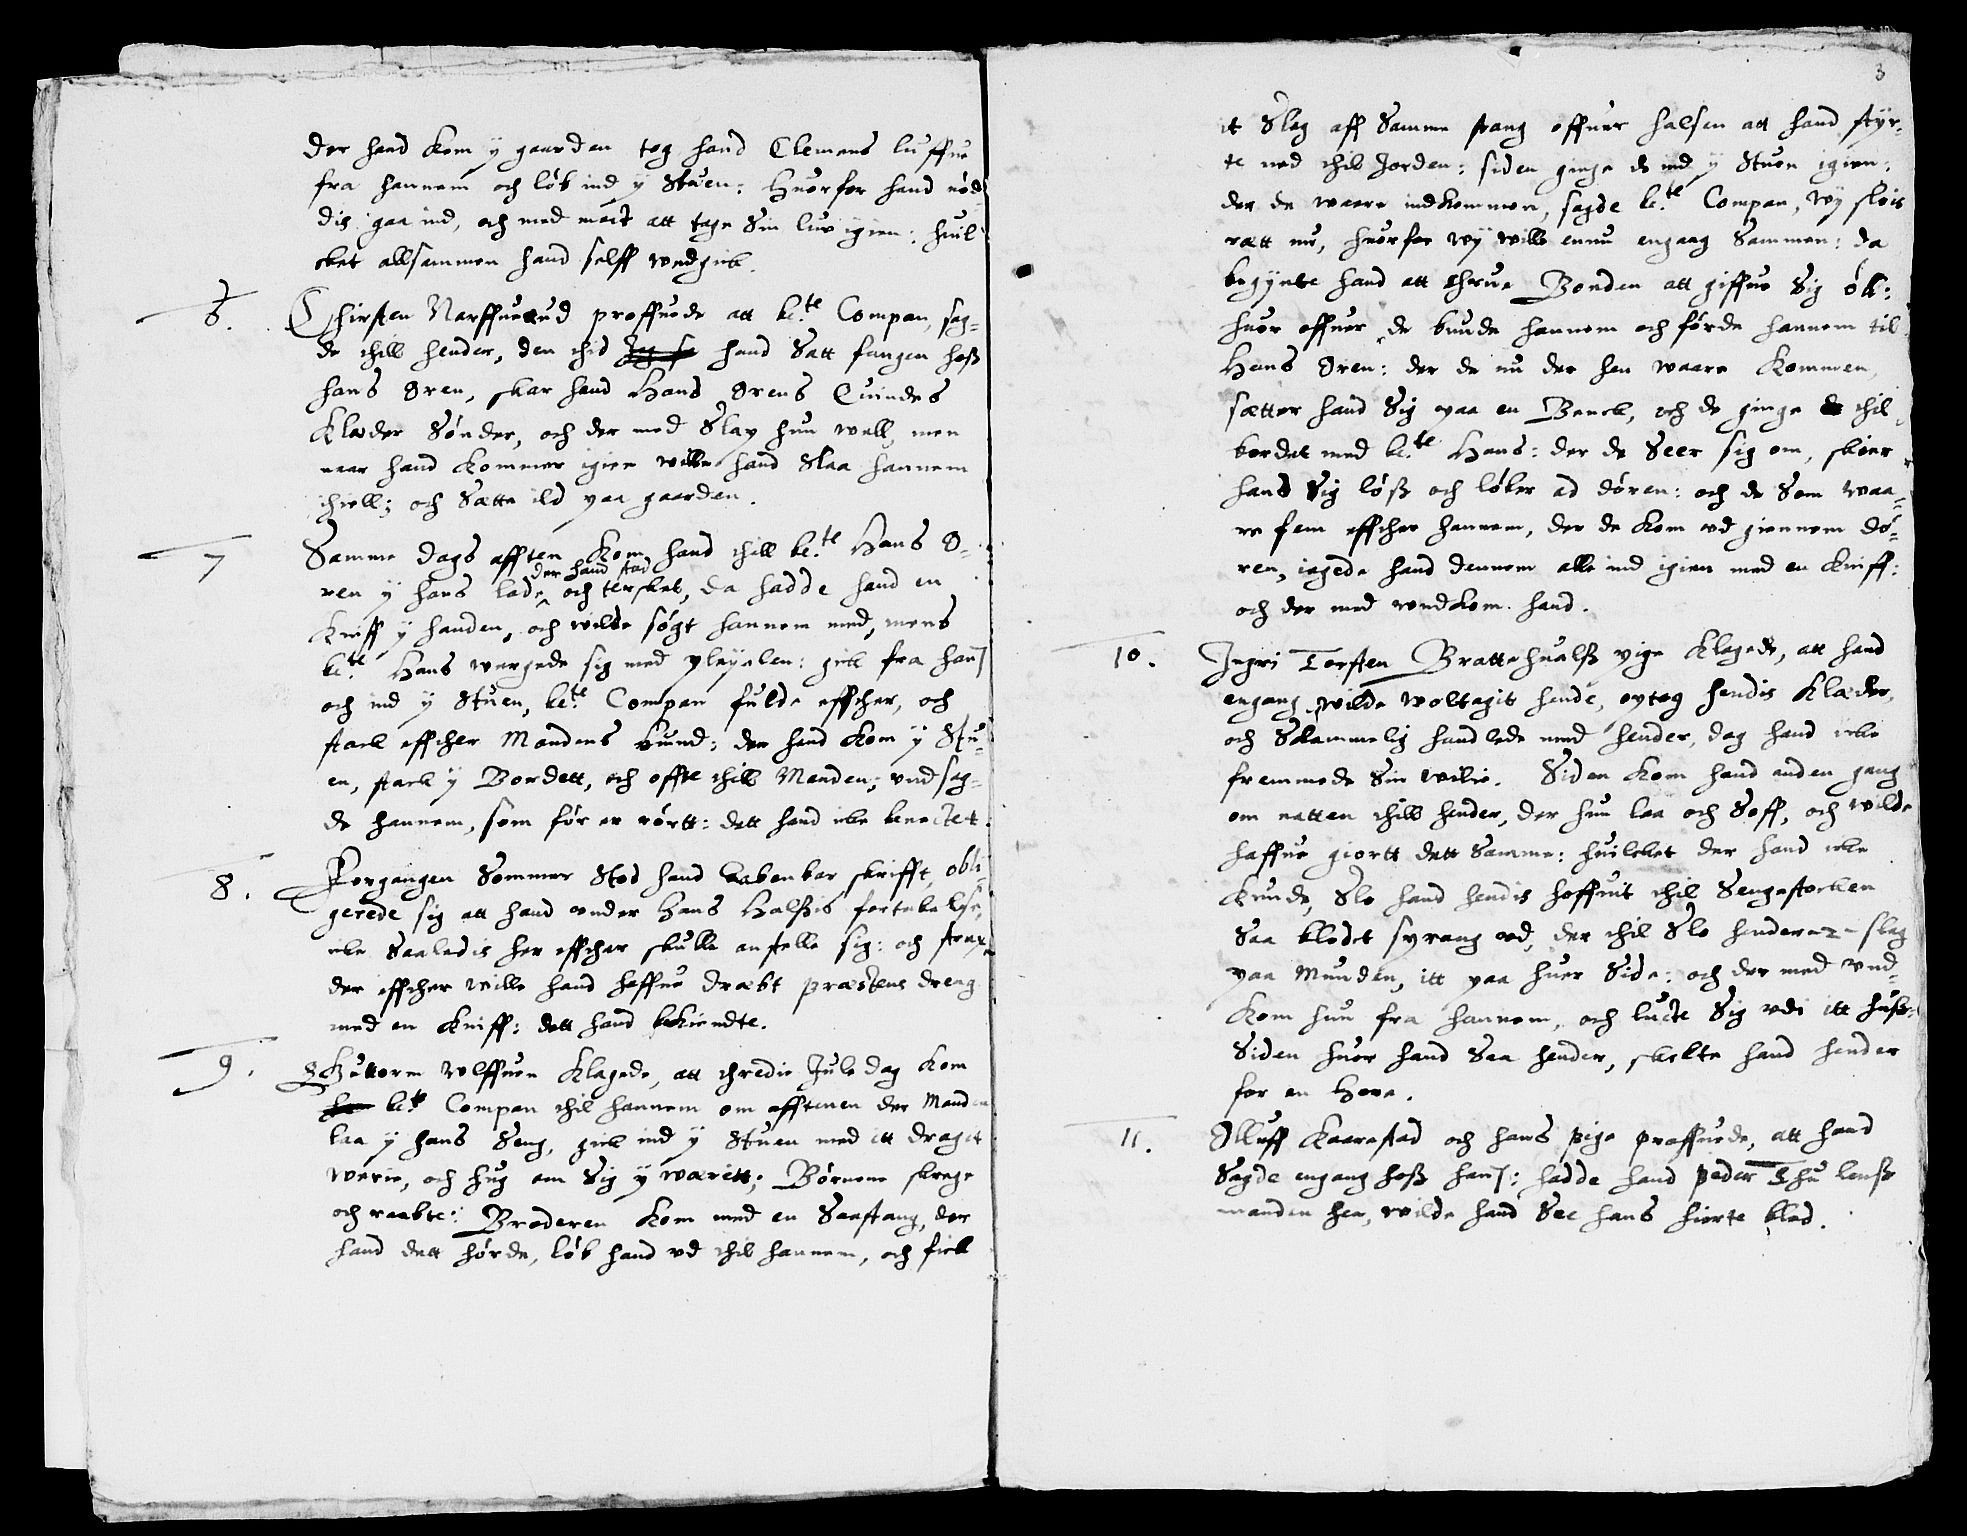 der hand kom y gaarden tog hand Clemens luffue
fra hannem och løb ind y Stuen: Huorfor hand nød-
dis gaa ind, och med mact att tage Sin luv igien: huil-
cket allsammen hand selff wedgick.
6. Chirsten Narffuerud proffuede att be.te Compan, sag-
de thill hender, den thid hand Satt fangen hoß
hans Oren, skar hand Hans Orens Quindes
Klæder Sønder, och der med Slap hun well, men
naar hand kommer igien wille hand Slaa hannem
ihiell; och Sætte ild paa gaarden.
7 Samme dags afften kom hand thill be.te Hans O-
der hand stod
ren y hans lade, och tersket, da hadde hand en
Kniff y handen, och wilde søgt hannem med, mens
be.te Hans wergede sig med pleyelen: gick fra hans
och ind y Stuen, be.te Compan fulde effther, och
stack effther Mandens Hund: der hand kom y Stu-
en, stack y Bordett, och offte thill Manden; vndsag-
de hannem, som før er rørtt: dett hand icke benectet.
8. Forgangen Sommer Stod hand aabenbar skrifft, obli-
gerede sig att hand vnder Hans Halßis fortabelse,
icke Saaledis her effther skulle anstelle sig: och strax
der effther wille hand haffue dræbt præstens dreng
med en kniff: dett hand bekiendte.
9. Guttorm Wlffuen Klagede, att thredie Jule dag kom
be.te Compan thil hannem om afftenen der Manden
laa y hans Seng, gick ind y Stuen med itt dragit
werie, och hug om Sig y wærett; Børnene skrege
och raabte: Broderen kom med en Saastang, der
hand dett hørde, løb hand vd thil hannem, och fick
3
it Slag aff Samme stang offuer halsen att hand styr-
te ned thil Jorden: siden ginge de ind y Stuen igien:
der de waare indkommen, sagde be.te Compan, wy slois
rætt nu, huorfor wy wille ennu engang Sammen: da
begynte hand att thrue Bonden att giffue Sig øll:
huor offuer de bunde hannem och førde hannem til
Hans Oren: der de nu der hen waare kommen,
sætter hand Sig paa en Benck, och de ginge thil
bordet med be.te Hans: der de Seer sig om, skiær
hand Sig løß och løber ad døren: och de Som waa-
re fem effther hannem, der de kom vd giennem dø-
ren, iagede hand dennem alle ind igien med en kniff:
och der med vndkom hand.
10. Ingri Torsten Brattehualß pige Klagede, att hand
engang wilde woltagit hende, optog hendis Klæder,
och Skammelig handlede med hender, dog hand icke
fremmede Sin vilie. Siden kom hand anden gang
om natten thill hender, der hun laa och Soff, och wilde
haffue giortt dett Samme: huilcket der hand icke
kunde, Slo hand hendis hoffuit thil Sengestocken
Saa blodet sprang vd, der thil Slo hender 2 slag
paa Munden, itt paa huer Side: och der med vnd-
kom hun fra hannem, och lucte Sig vdi itt huß:
Siden huor hand Saa hender, skelte hand hender
for en Hore.
11. Olluff Kaarestad och hans pige proffuede, att hand
Sagde engang hoß hans: hadde hand peder Thu lenß
manden her, wilde hand See hans hierte blod.